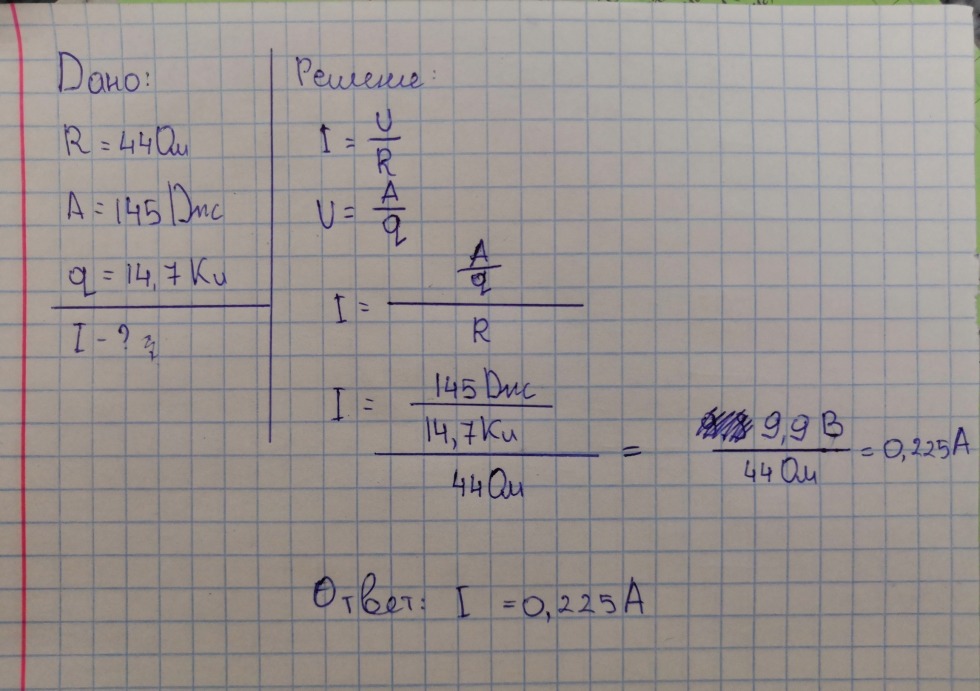 Дано:
R = 44 Ом
A = 145 Дж
q = 14,7 Кл
I - ?
Решение:
I = U/R
U = A/q
I = (A/q)/R
I = (145 Дж/14,7 Кл)/44 Ом = 9,9 В/44 Ом = 0,225 А
Ответ: I = 0,225 А